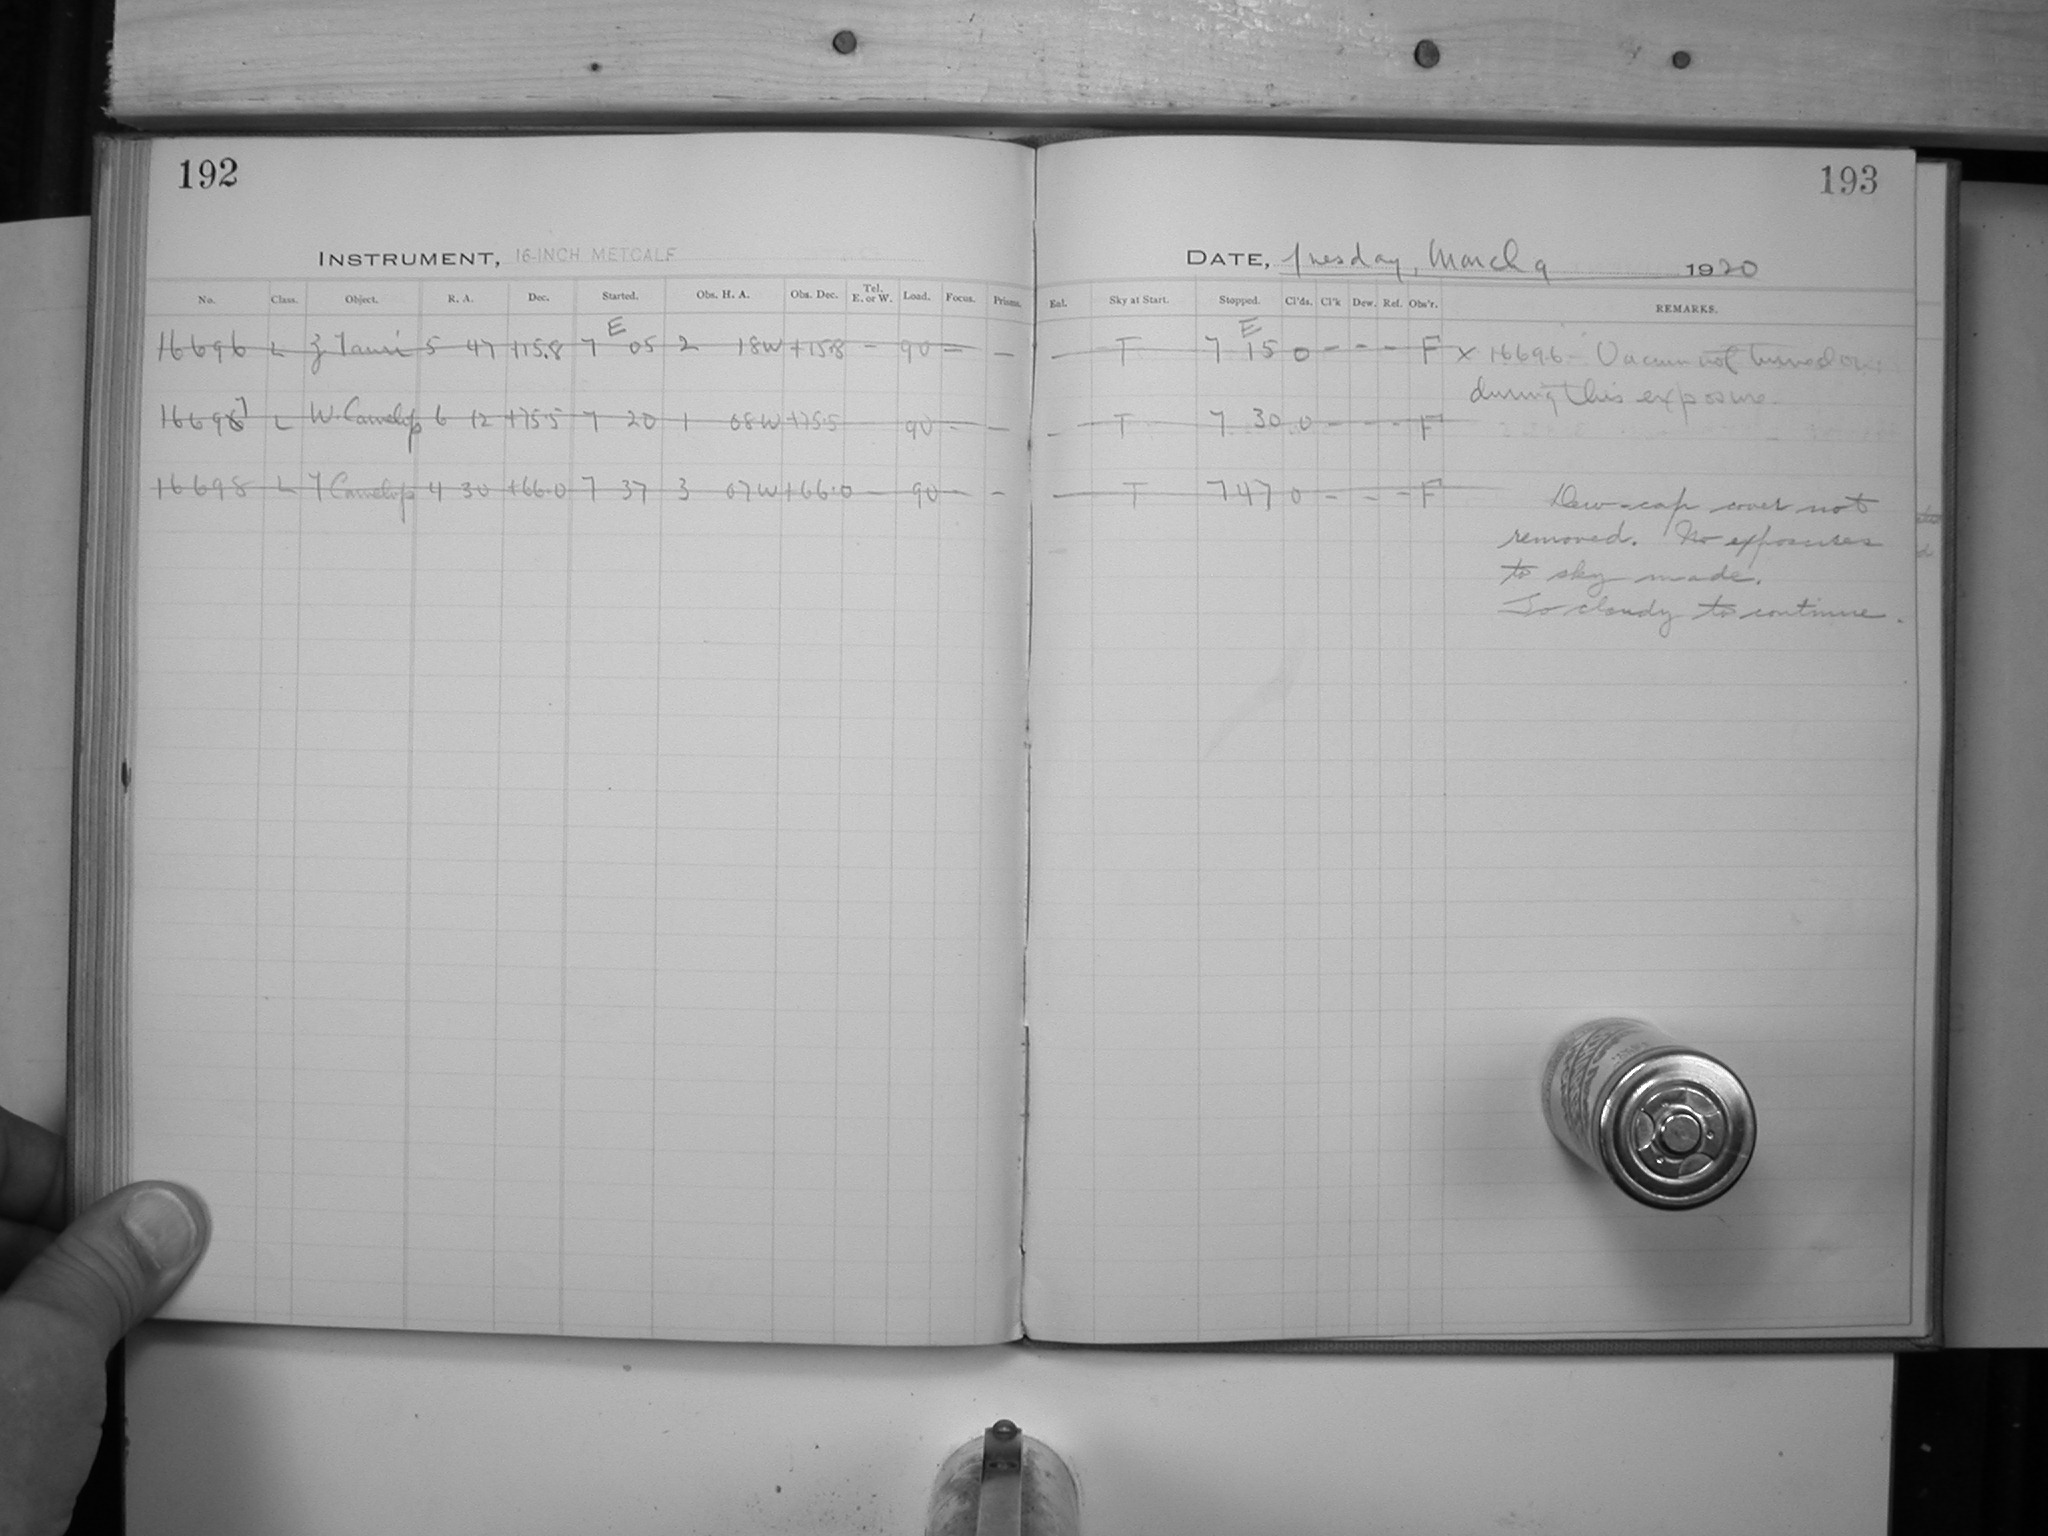 192
193
INSTRUMENT, 16-INCH METCALF
DATE, Tuesday, March 9 1920
No. Class. Object. R. A. Dec. Started. Obs. H. A. Obs. Dec. Tel. E. or W. Load. Focus. Prisms.
Eml. Sky at Start. Stopped. Cl'ds. Cl'k Dew. Ref. Obs'r. REMARKS.
E
E
16696 L Z Tauri 5 47 +15.8 7 05 2 18W +15.8 - 90 - - - T 7 15 0 - - - F x 16696. Vacuum not turned on
during this exposure.
16697 L W. Camelop 6 12 +75.5 7 20 1 08W +75.5 90 - - - T 7 30 0 - - - F
16698 L T Camelop 4 30 +66.0 7 37 3 07W +66.0 - 90 - - - T 7 47 0 - - - F
Dew-cap cover not
removed. No exposures
to sky made.
To cloudy to continue.